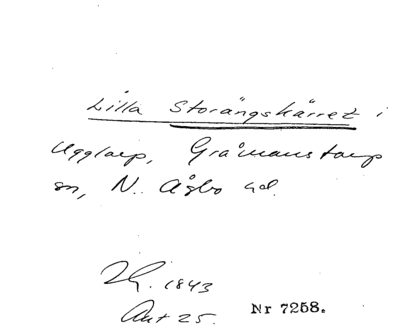 Lilla Storängskärret i
Ugglarp, Gråmanstorp
sn, N. Åsbo hd.
1843
Akt 25. Nr 7258.